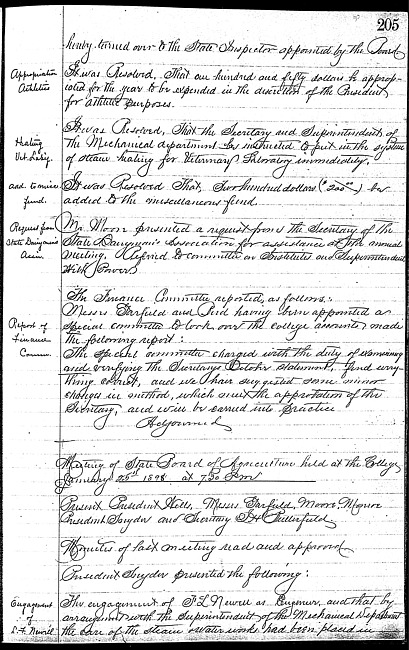 205
hereby turned over to the State Inspector appointed by the Board
Appropriation
Athletics
It was Resolved, That one hundred and fifty dollars be approp-
iated for the year to be expended in the discretion of the President
for athletic purposes.
Heating
Vet. Laby.
It was Resolved, That the Secretary and Superintendent of
the Mechanical department be instructed to put in the system
of steam heating for Veterinary Laboratory immediately.
add. to misce
fund.
It was Resolved That, Two hundred dollars ($200) be
added to the miscellaneous fund.
Request from
State Dairymens
Assn.
Mr. Moore presented a request from the Secretary of the
State Dairymen's Association for assistance at the annual
meeting. Referred to committee on Institutes and Superintendent
with Power
Report of
Finance
Comm.
The Finance Committee reported, as follows:
Messrs Garfield and Reid having been appointed a
special committee to look over the college accounts, made
the following report:
The special committee charged with the duty of examining
and verifying the Secretarys October statement, find every-
thing correct, and we have suggested some minor
changes in method, which meet the approbation of the
Secretary, and will be carried into practice
Adjourned
Meeting of State Board of Agriculture held at the College
January 25th 1898 at 7.30 P.m.
Present President Wells, Messrs. Garfield, Moore, Monroe
President Snyder and Secretary Butterfield
Minutes of last meeting read and approved
President Snyder presented the following:
Engagement
of
Newell
The engagement of F L Newell as Engineer, and that by
arrangement with the Superintendent of the Mechanical Department
the care of the steam & water works had been placed in